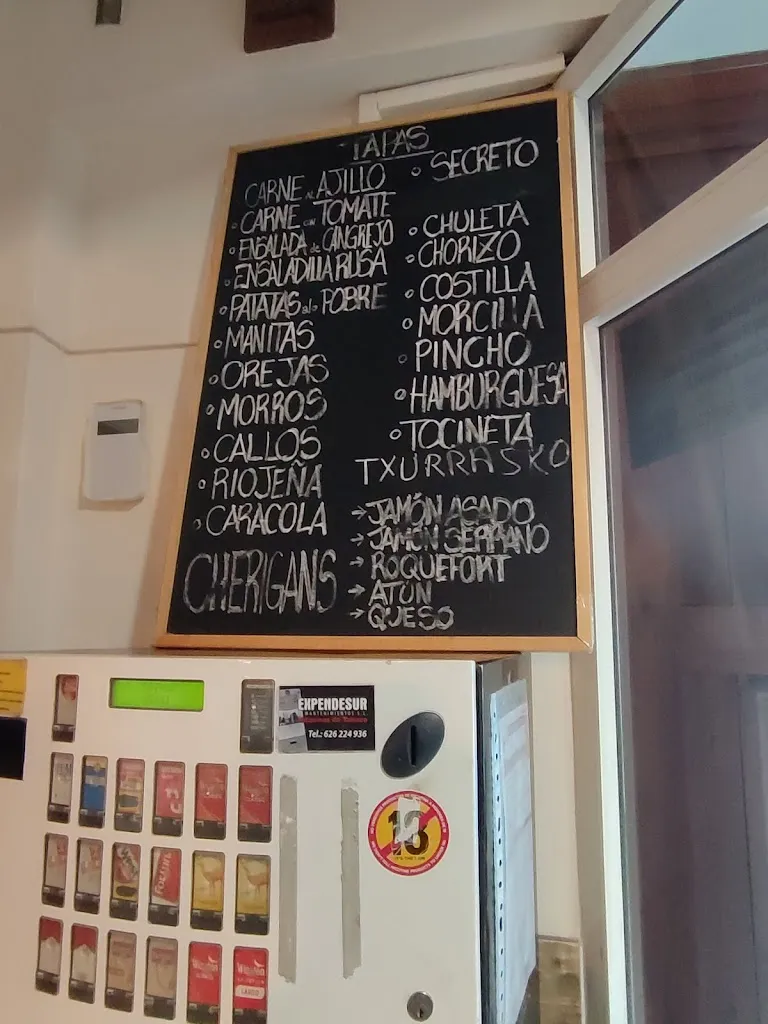 TAPAS
CARNE AL AJILLO
CARNE CON TOMATE
ENSALADA de CANGREJO
ENSALADILLA RUSA
PATATAS a lo POBRE
MANITAS
OREJAS
MORROS
CALLOS
RIOJEÑA
CARACOLA
CHERIGANS
SECRETO
CHULETA
CHORIZO
COSTILLA
MORCILLA
PINCHO
HAMBURGUESA
TOCINETA
TXURRASKO
→ JAMÓN ASADO
→ JAMÓN SERRANO
→ ROQUEFORT
→ ATÚN
→ QUESO
EXPENDESUR
MANTENIMIENTOS S.L.
Máquinas de Tabaco
Tel.: 626 224 936
18
FORTUNA
Winston
Winston
LARGO